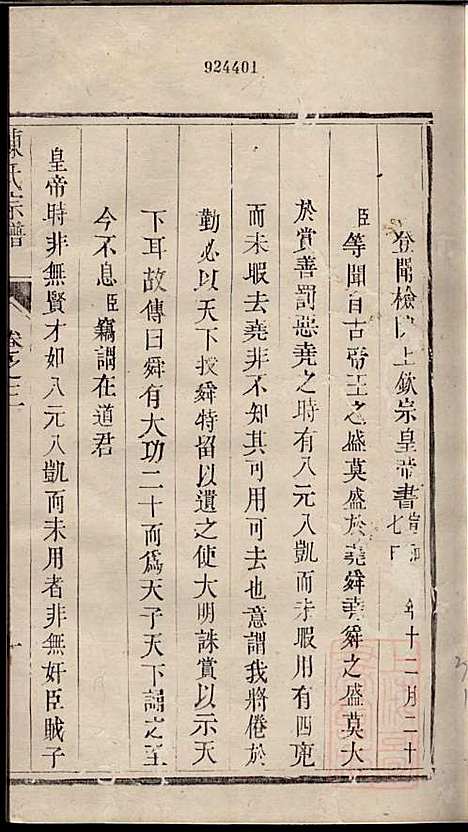 924401
登聞檢院上欽宗皇帝書宣和 年十二月二十七日
臣等聞自古帝王之盛莫盛於堯舜堯舜之盛莫大
於賞善罰惡堯之時有八元八凱而未暇用有四兇
而未暇去堯非不知其可用可去也意謂我將倦於
勤必以天下授舜特留以遺之使大明誅賞以示天
下耳故傳曰舜有大功二十而為天子天下謂之至
今不息臣竊謂在道君
皇帝時非無賢才如八元八凱而未用者非無奸臣賊子
陳氏宗譜 卷之二